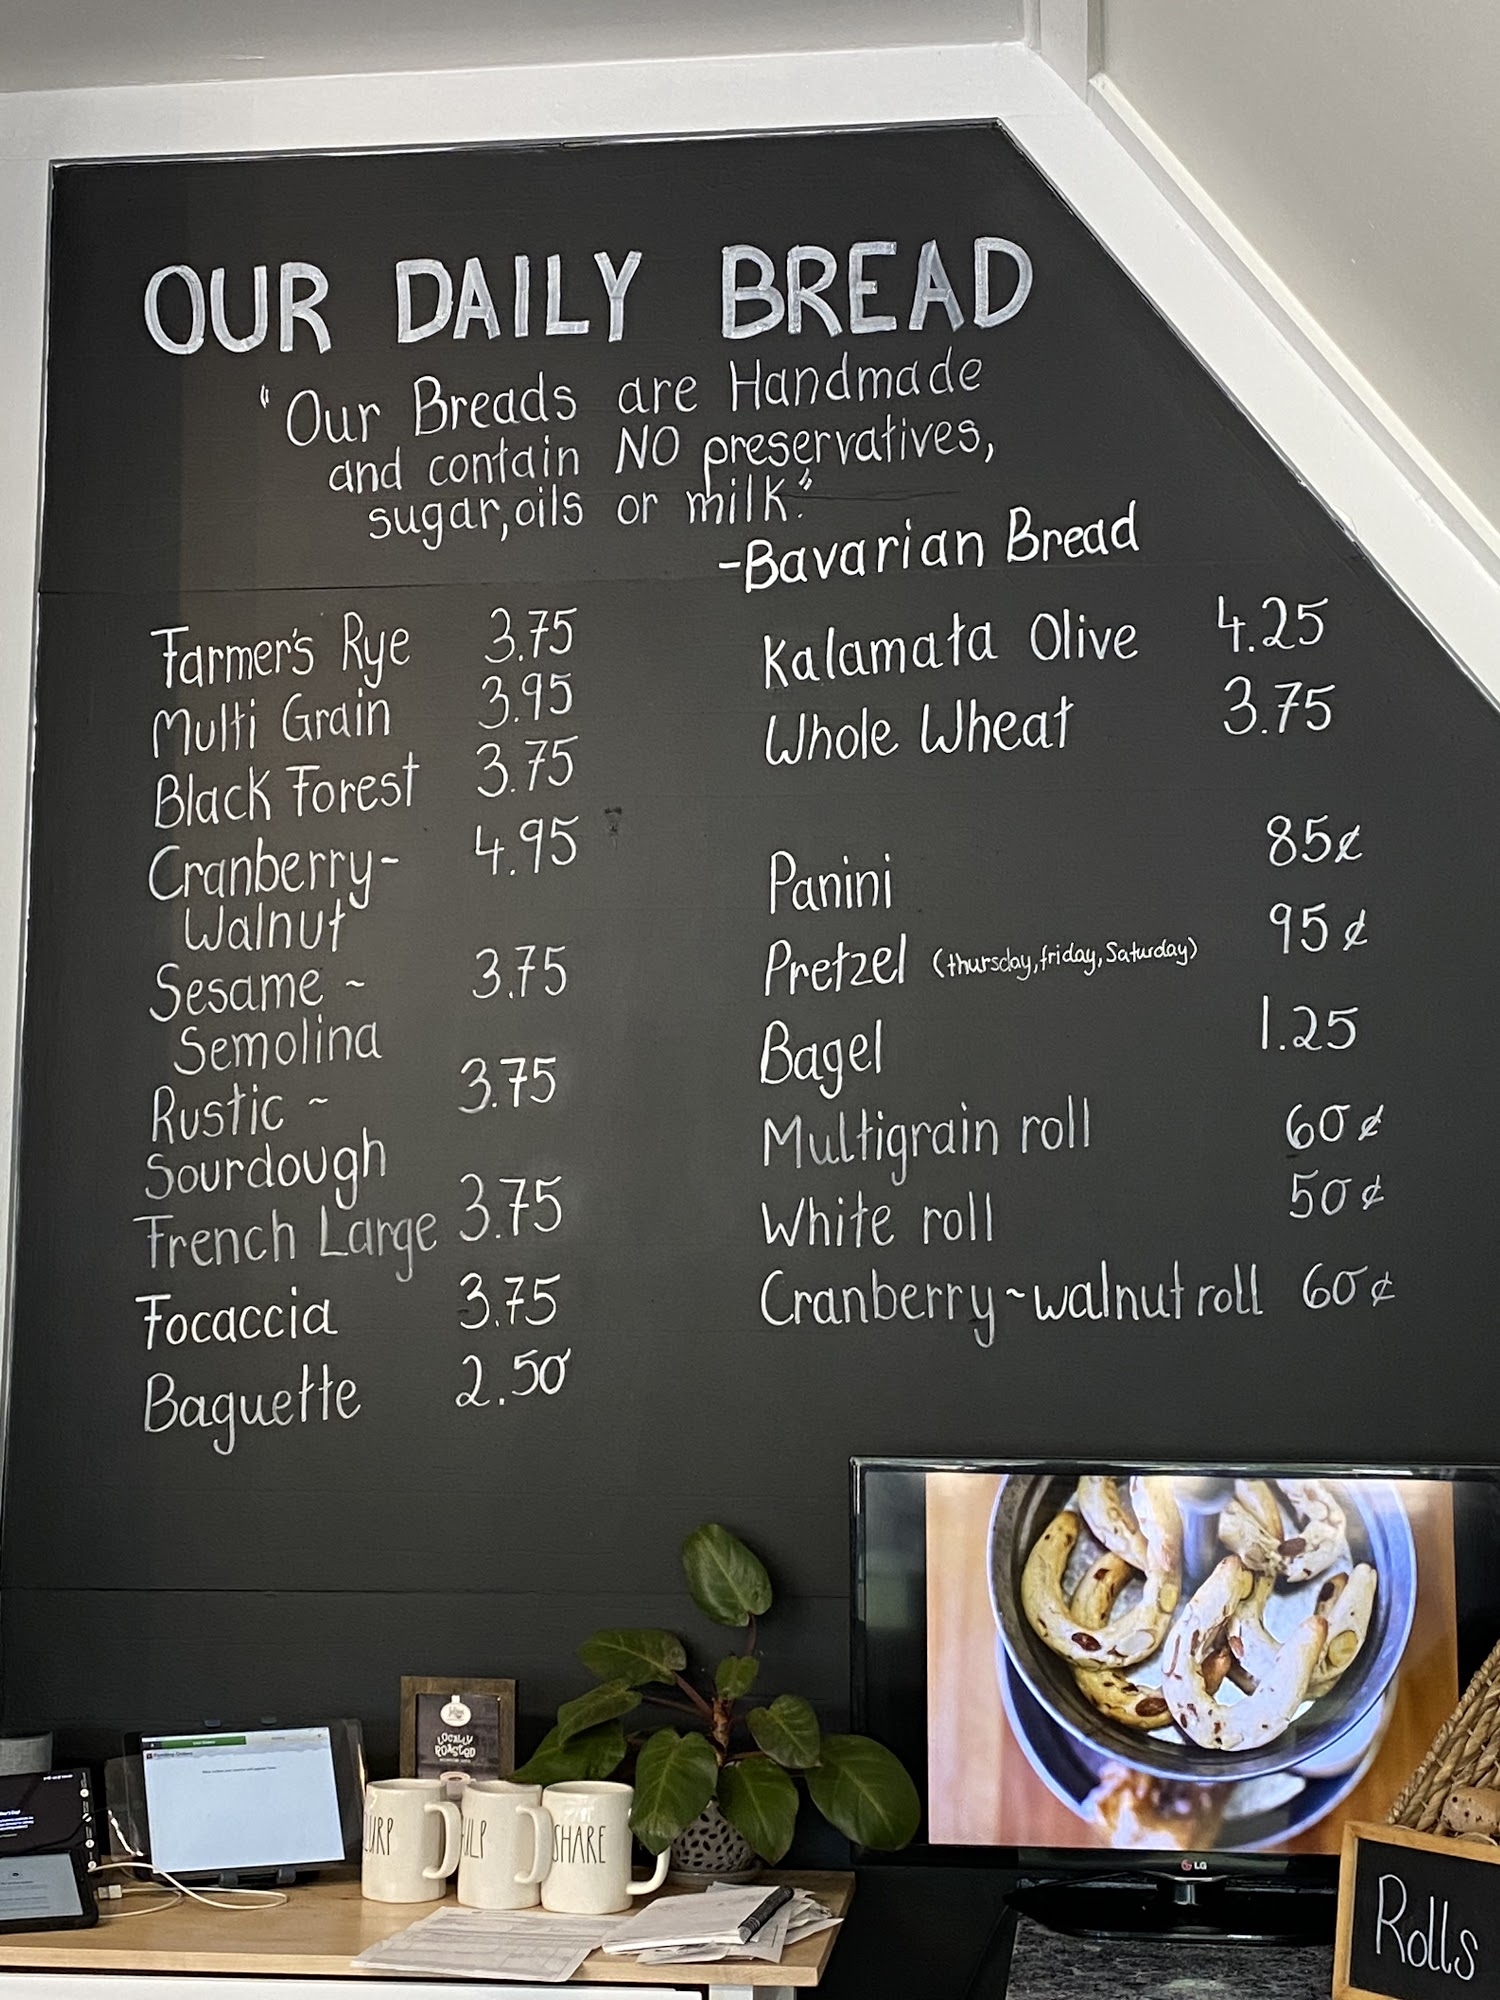 OUR DAILY BREAD
"Our Breads are Handmade
and contain NO preservatives,
sugar, oils or milk."
-Bavarian Bread
Farmer's Rye 3.75
Multi Grain 3.95
Black Forest 3.75
Cranberry- 4.95
Walnut
Sesame ~ 3.75
Semolina
Rustic ~ 3.75
Sourdough
French Large 3.75
Focaccia 3.75
Baguette 2.50
Kalamata Olive 4.25
Whole Wheat 3.75
Panini 85¢
Pretzel (thursday, friday, Saturday) 95¢
Bagel 1.25
Multigrain roll 60¢
White roll 50¢
Cranberry~walnut roll 60¢
LOCALLY
ROASTED
SHARE
LG
Rolls